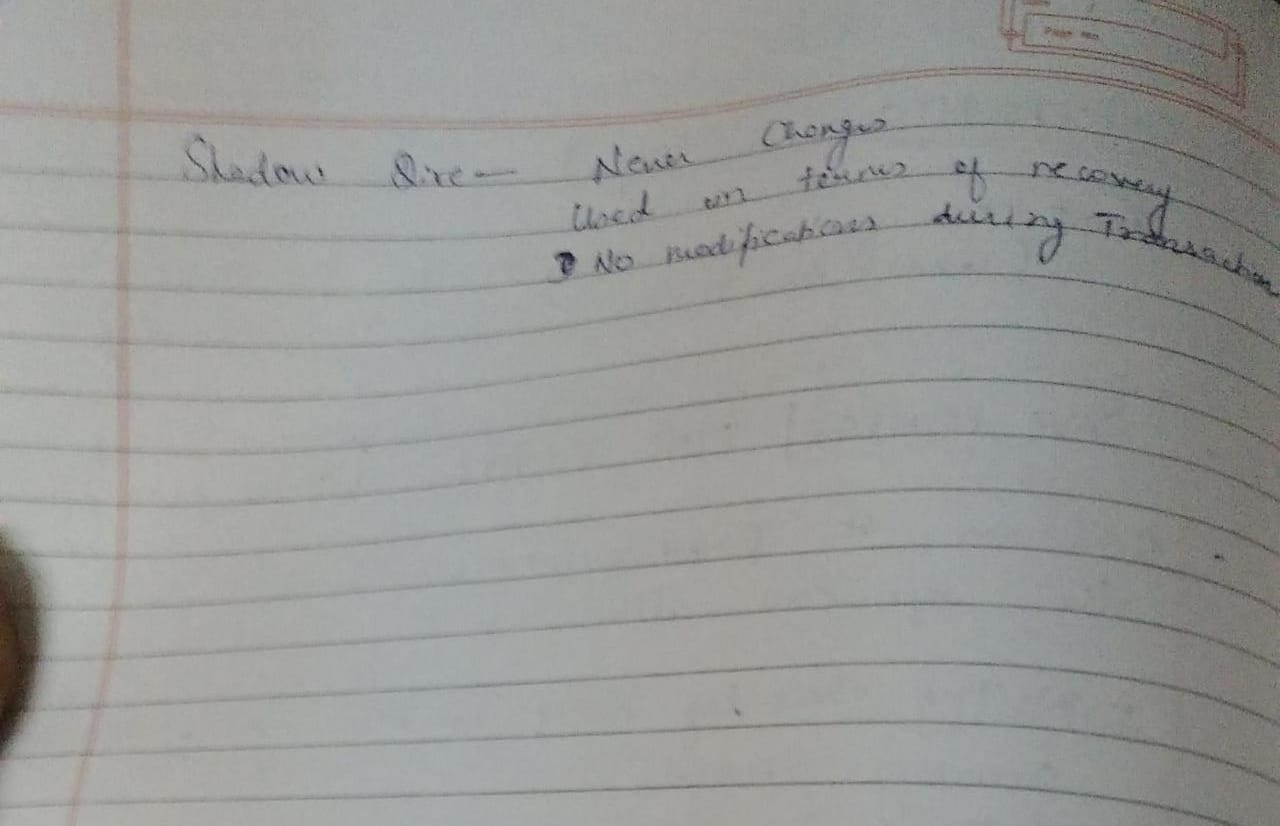 Page No.
Shadow Dire— Never Changes
Used in terms of recovery
No modifications during Transaction